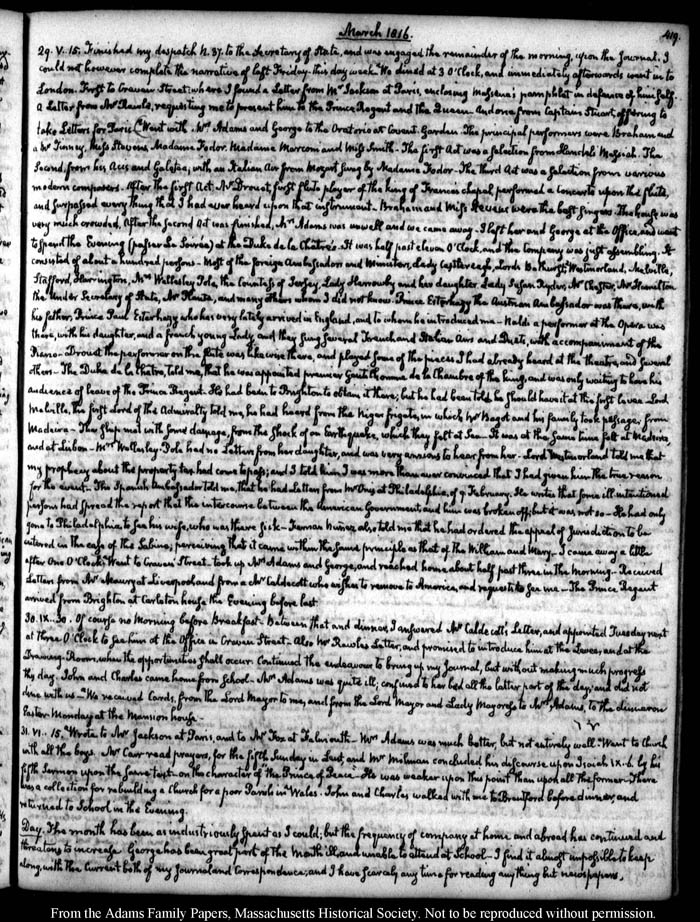 March 1816.
419.
29. V. 15. Finished my despatch N. 37. to the Secretary of State, and was engaged the remainder of the morning, upon the Journal. I
could not however complete the narrative of last Friday this day week. We dined at 3 O'Clock, and immediately afterwards went in to
London. First to Craven Street: where I found a Letter from Mr Jackson at Paris, enclosing Massena's pamphlet in defence of himself.
a Letter from Mr Rawle, requesting me to present him to the Prince Regent and the Queen. And one from Captain Stuart, offering to
take Letters for Paris. Went with Mrs Adams and George to the Oratorio at Covent-Garden. The principal performers were Braham and
a Mr Tinney, Miss Stevens, Madame Fodor, Madame Marconi and Miss Smith. The first Act was a selection from Handel's Messiah. The
Second, from his Acis and Galatea, with an Italian Air from Mozart sung by Madame Fodor. The third Act was a Selection from various
modern composers. After the first Act, Mr Drouet, first flute player of the king of France's chapel performed a concerto upon the flute,
and surpassed every thing that I had ever heard upon that instrument. Braham and Miss Stevens were the best singers. The house was
very much crowded. After the second Act was finished, Mrs Adams was unwell and we came away. I left her and George at the Office, and went
to spend the Evening (passer la Soirée) at the Duke de la Châtre's. It was half past eleven O'Clock, and the company was just assembling. It
consisted of about a hundred persons. Most of the foreign Ambassadors and Ministers, Lady Castlereagh, Lords Bathurst, Westmorland, Melville,
Stafford, Harrington, Mrs Wellesley Pole, the Countess of Jersey, Lady Harrowby and her daughter Lady Susan Ryder, Mr Chester, Mr Hamilton
the Under Secretary of State, Mr Planta, and many others whom I did not know. Prince Esterhazy the Austrian Ambassador was there, with
his father, Prince Paul Esterhazy who has very lately arrived in England, and to whom he introduced me. Naldi a performer at the Opera was
there, with his daughter, and a french young Lady, and they sung several French and Italian Airs and Duets, with accompaniment of the
Piano. Drouet the performer on the flute was likewise there, and played some of the pieces I had already heard at the theatre, and several
others. The Duke de la Châtre, told me, that he was appointed premier Gentilhomme de la Chambre of the king, and was only waiting to have his
audience of leave of the Prince Regent. He had been to Brighton to obtain it there; but he had been told, he should have it at the first Levee. Lord
Melville, the first Lord of the Admiralty told me, he had heard from the Niger frigate, in which Mr Bagot and his family took passage, from
Madeira. The Ship met with some damage, from the shock of an Earthquake, which they felt at Sea. It was at the same time felt at Madeira,
and at Lisbon. Mrs Wellesley Pole had no Letters from her daughter, and was very anxious to hear from her. Lord Westmorland told me that
my prophecy about the property tax had come to pass; and I told him I was more than ever convinced that I had given him the true reason
for the event. The Spanish Ambassador told me, that he had Letters from Mr Onis at Philadelphia, of 9 February. He writes that some ill intentioned
persons had spread the report that the intercourse between the American Government and him was broken off; but it was not so. He had only
gone to Philadelphia to see his wife, who was there sick. Fernan Nuñez also told me that he had ordered the appeal of Jurisdiction to be
entered in the case of the Sabina; perceiving that it came within the same principle as that of the William and Mary. I came away a little
after One O'Clock. Went to Craven Street. took up Mrs Adams and George, and reached home about half past three in the Morning. Received
Letters from Mr Maury at Liverpool and from a Mr Caldecott who wishes to remove to America, and requests to see me. The Prince Regent
arrived from Brighton at Carleton house the Evening before last.
30. IX. 30. Of course no Morning before Breakfast. Between that and dinner, I answered Mr Caldecott's Letter, and appointed Tuesday next
at three O'Clock to see him at the Office in Craven Street. Also Mr Rawle's Letter, and promised to introduce him at the Levee, and at the
Drawing-Room, when the opportunities shall occur. Continued the endeavour to bring up my Journal, but without making much progress
this day. John and Charles came home from School. Mrs Adams was quite ill; confined to her bed all the latter part of the day, and did not
dine with us. We received Cards, from the Lord Mayor to me, and from the Lord Mayor and Lady Mayoress to Mrs Adams, to the dinner on
Easter Monday at the Mansion house.
31. VI. 15. Wrote to Mr Jackson at Paris, and to Mr Fox at Falmouth. Mrs Adams was much better, but not entirely well. Went to Church
with all the boys. Mr Carr read prayers, for the fifth Sunday in Lent, and Mr Milman concluded his discourse upon Isaiah IX. 6. by his
fifth Sermon upon the same text. on the character of the Prince of Peace. He was weaker upon this point than upon all the former. There
was a collection for rebuilding a Church for a poor Parish in Wales. John and Charles walked with me to Brentford before dinner, and
returned to School in the Evening.
Day. The month has been as industriously spent as I could; but the frequency of company at home and abroad has continued and
threatens to increase. George has been great part of the Month ill, and unable to attend at School. I find it almost impossible to keep
along, with the current both of my Journal and Correspondence; and I have scarcely any time for reading any thing but newspapers,
From the Adams Family Papers, Massachusetts Historical Society. Not to be reproduced without permission.